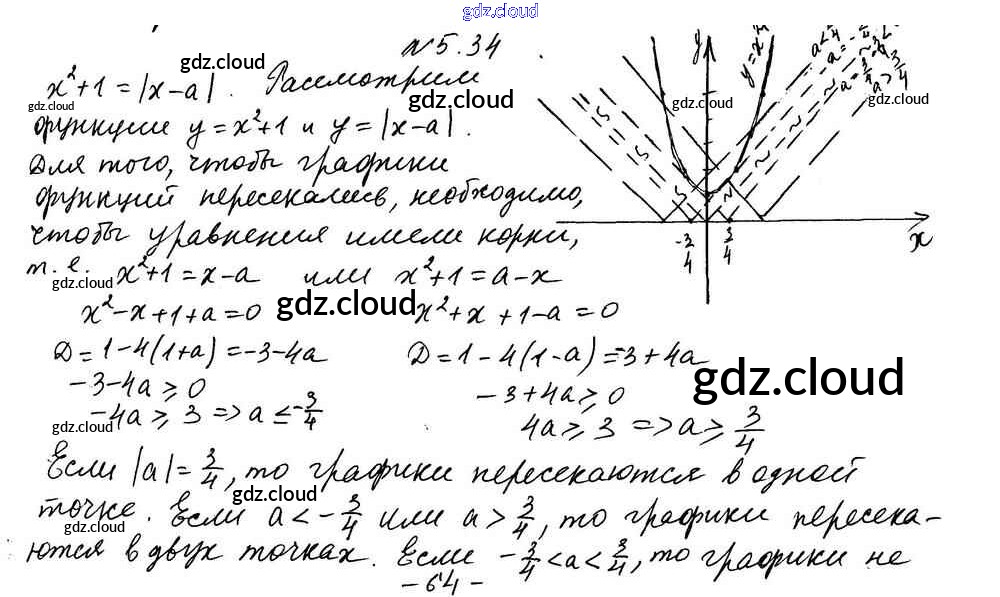 gdz.cloud
№ 5.34
x²+1=|x-a|. Рассмотрим
функции y=x²+1 и y=|x-a|.
Для того, чтобы графики
функций пересекались, необходимо,
чтобы уравнения имели корни,
т.е. x²+1=x-a или x²+1=a-x
x²-x+1+a=0 x²+x+1-a=0
D=1-4(1+a)=-3-4a D=1-4(1-a)=-3+4a
-3-4a⩾0 -3+4a⩾0
-4a⩾3 => a≤-3/4 4a⩾3 => a⩾3/4
Если |a|=3/4, то графики пересекаются в одной
точке. Если a<-3/4 или a>3/4, то графики пересека-
ются в двух точках. Если -3/4<a<3/4, то графики не
-64-
y
y=x²+1
a>3/4
x
-3/4
3/4
gdz.cloud
gdz.cloud
gdz.cloud
gdz.cloud
gdz.cloud
gdz.cloud
gdz.cloud
gdz.cloud
gdz.cloud
gdz.cloud
gdz.cloud
gdz.cloud